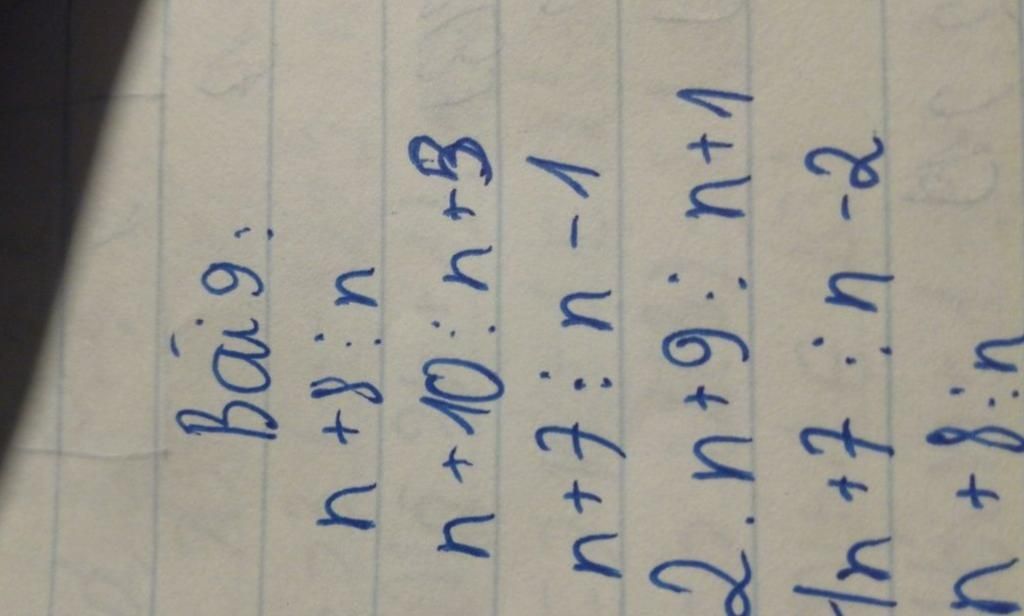 Bài 9:
n + 8 ⋮ n
n + 10 ⋮ n + 3
n + 7 ⋮ n - 1
2. n + 9 ⋮ n + 1
/n + 7 ⋮ n - 2
n + 8 ⋮ n